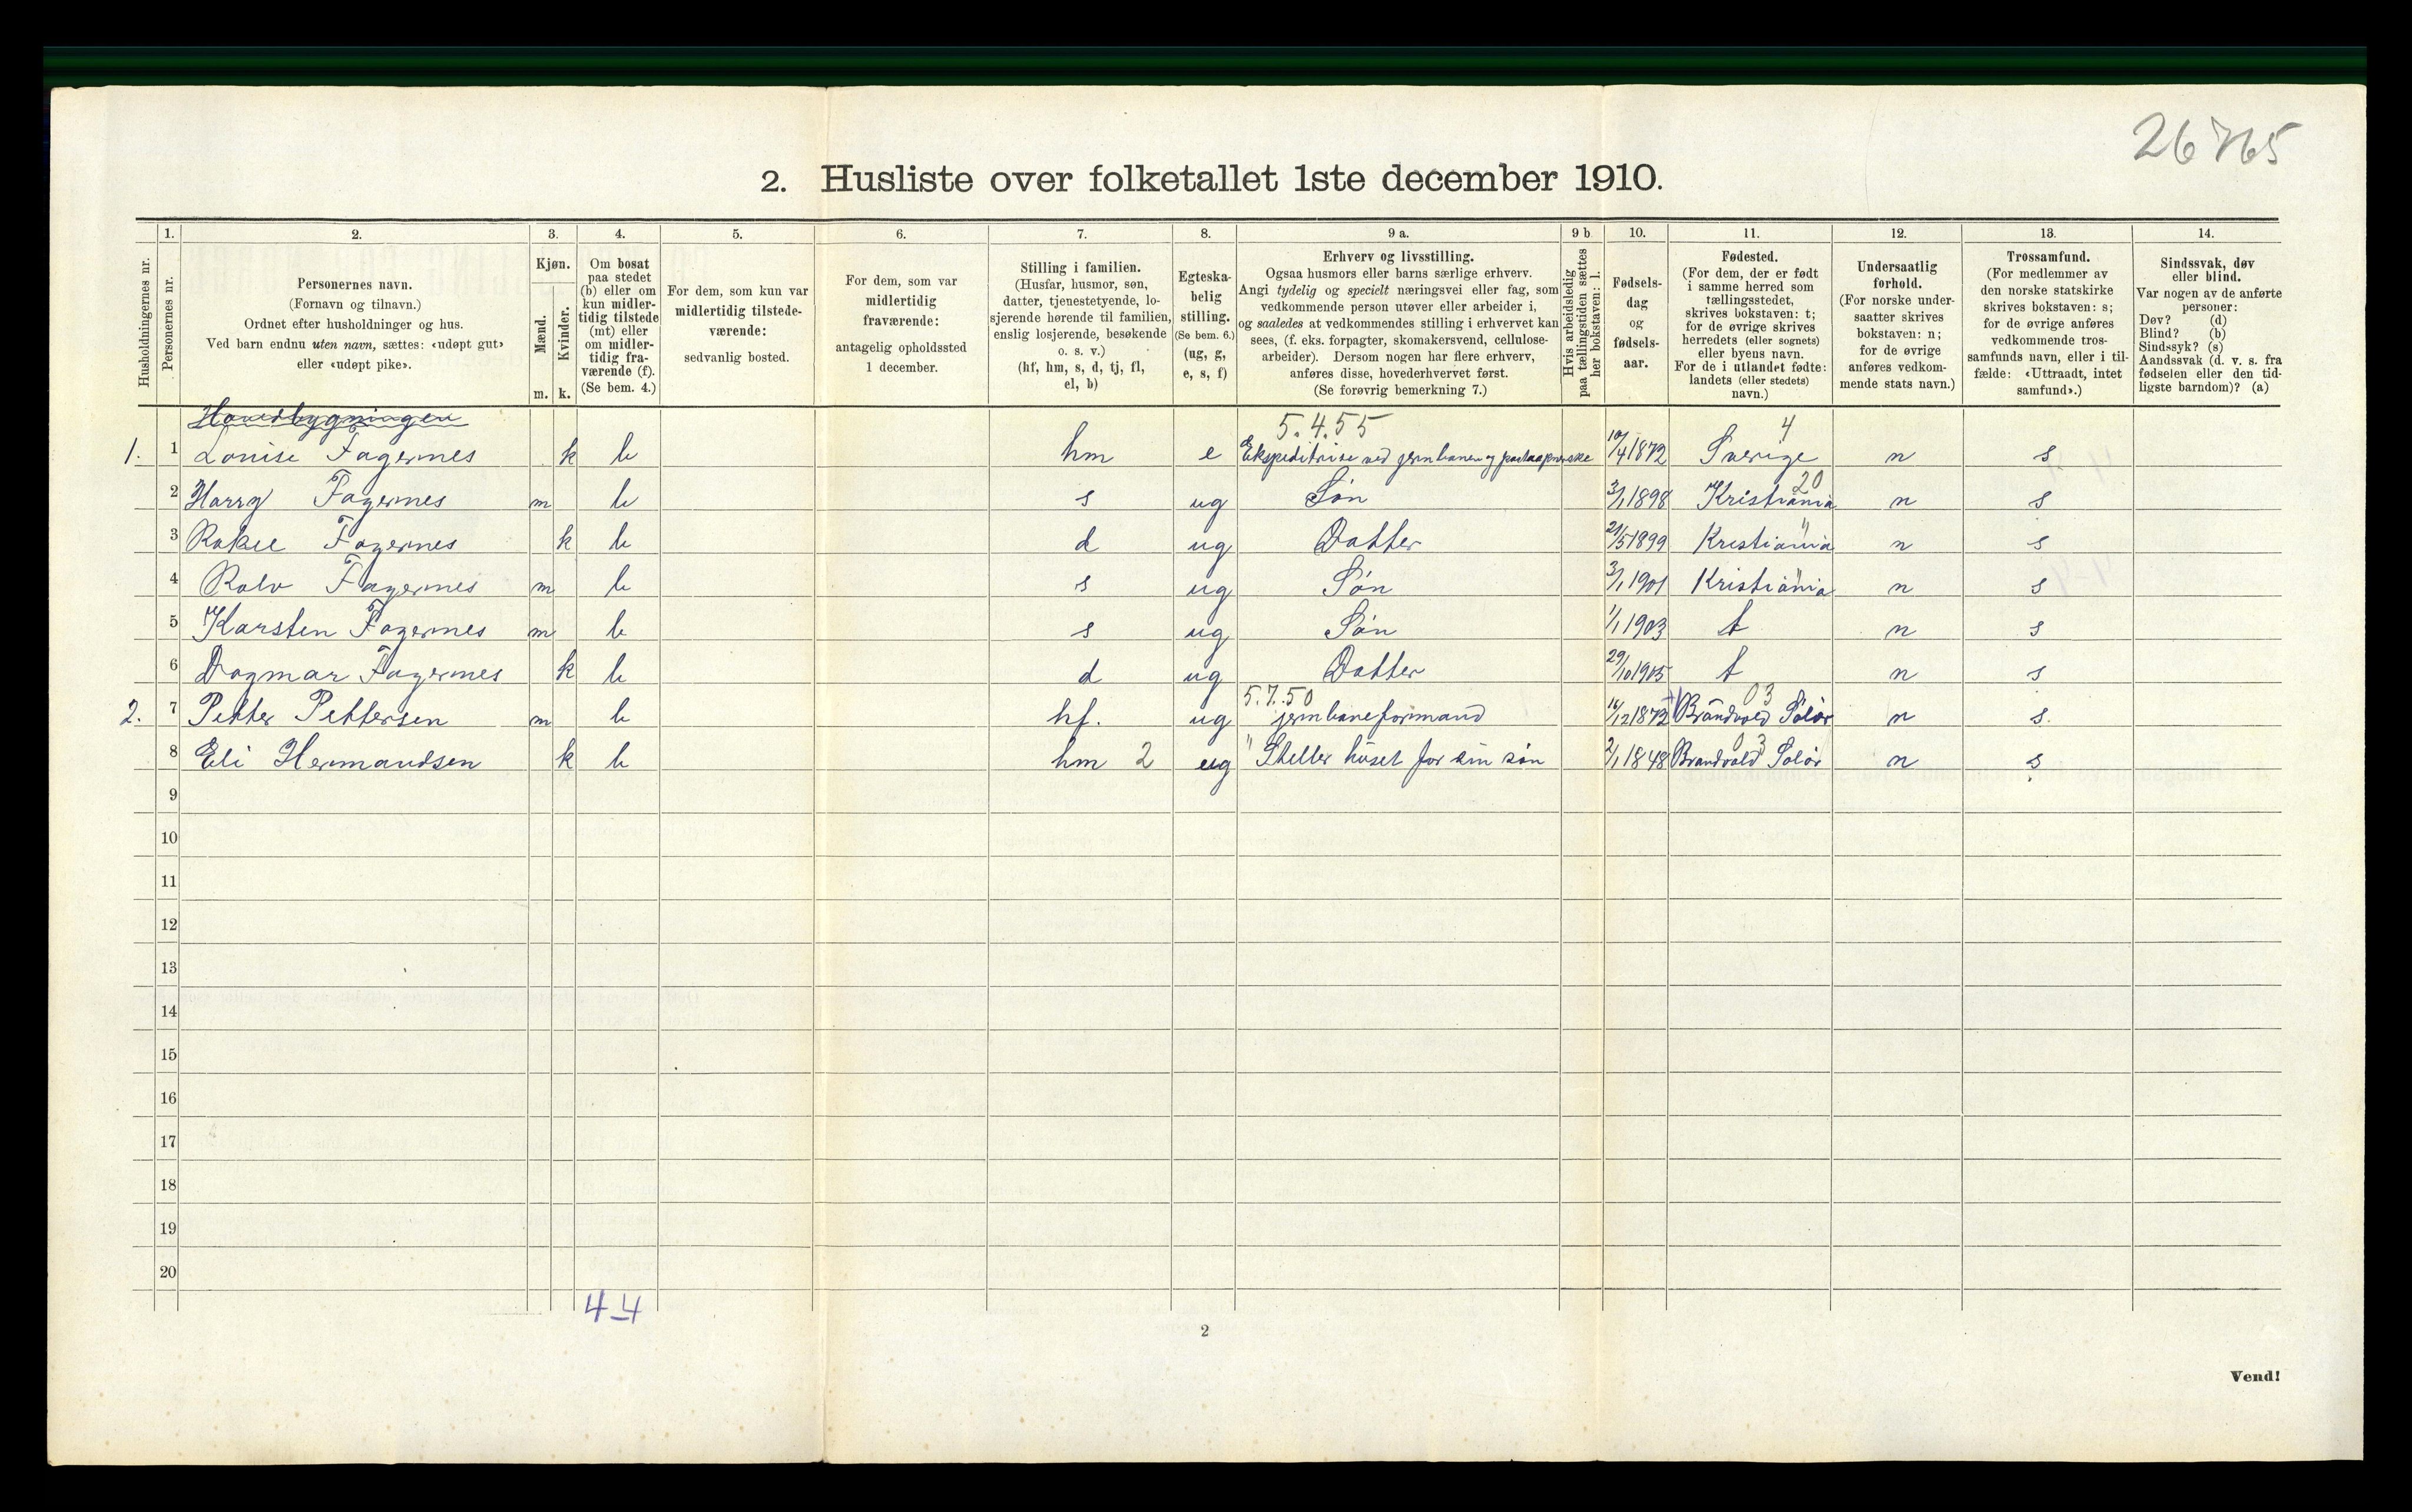 26765
2. Husliste over folketallet 1ste december 1910.
Husholdningernes nr.
1.
Personernes nr.
2.
Personernes navn.
(Fornavn og tilnavn.)
Ordnet efter husholdninger og hus.
Ved barn endnu uten navn, sættes: «udøpt gut»
eller «udøpt pike».
3.
Kjøn.
Mænd.
Kvinder.
m. k.
4.
Om bosat
paa stedet
(b) eller om
kun midler-
tidig tilstede
(mt) eller
om midler-
tidig fra-
værende (f).
(Se bem. 4.)
5.
For dem, som kun var
midlertidig tilstede-
værende:
sedvanlig bosted.
6.
For dem, som var
midlertidig
fraværende:
antagelig opholdssted
1 december.
7.
Stilling i familien.
(Husfar, husmor, søn,
datter, tjenestetyende, lo-
sjerende hørende til familien,
enslig losjerende, besøkende
o. s. v.)
(hf, hm, s, d, tj, fl,
el, b)
8.
Egteska-
belig
stilling.
(Se bem. 6.)
(ug, g,
e, s, f)
9 a.
Erhverv og livsstilling.
Ogsaa husmors eller barns særlige erhverv.
Angi tydelig og specielt næringsvei eller fag, som
vedkommende person utøver eller arbeider i,
og saaledes at vedkommendes stilling i erhvervet kan
sees, (f. eks. forpagter, skomakersvend, cellulose-
arbeider). Dersom nogen har flere erhverv,
anføres disse, hovederhvervet først.
(Se forøvrig bemerkning 7.)
9 b
Hvis arbeidsledig
paa tællingstiden sættes
her bokstaven: l.
10.
Fødsels-
dag
og
fødsels-
aar.
11.
Fødested.
(For dem, der er født
i samme herred som
tællingsstedet,
skrives bokstaven: t;
for de øvrige skrives
herredets (eller sognets)
eller byens navn.
For de i utlandet fødte:
landets (eller stedets)
navn.)
12.
Undersaatlig
forhold.
(For norske under-
saatter skrives
bokstaven: n;
for de øvrige
anføres vedkom-
mende stats navn.)
13.
Trossamfund.
(For medlemmer av
den norske statskirke
skrives bokstaven: s;
for de øvrige anføres
vedkommende tros-
samfunds navn, eller i til-
fælde: «Uttraadt, intet
samfund».)
14.
Sindssvak, døv
eller blind.
Var nogen av de anførte
personer:
Døv? (d)
Blind? (b)
Sindssyk? (s)
Aandssvak (d. v. s. fra
fødselen eller den tid-
ligste barndom)? (a)
Hovedbygningen
5.4.55 4
1. 1 Louise Fagernes k b hm e Ekspeditrise ved jernbanen og postaapnerske 10/4 1872 Sverige n s
20
2 Harry Fagernes m b s ug Søn 3/1 1898 Kristiania n s
3 Fagernes k b d ug Datter 21/5 1899 Kristiania " n s
4 Rolv Fagernes m b s ug Søn 3/1 1901 Kristiania " n s
5 Karsten Fagernes m b s ug Søn 1/1 1903 t n s
6 Dagmar Fagernes k b d ug Datter 29/10 1905 t n s
5.7.50 03
2. 7 Petter Pettersen m b hf. ug jernbaneformand 16/12 1872 Brandvold Solør n s.
03
8 Eli Hermandsen k b hm 2 ug " Steller huset for sin søn 2/1 1848 Brandvold Solør n s
9
10
11
12
13
14
15
16
17
18
19
20
4-4
2
Vend!